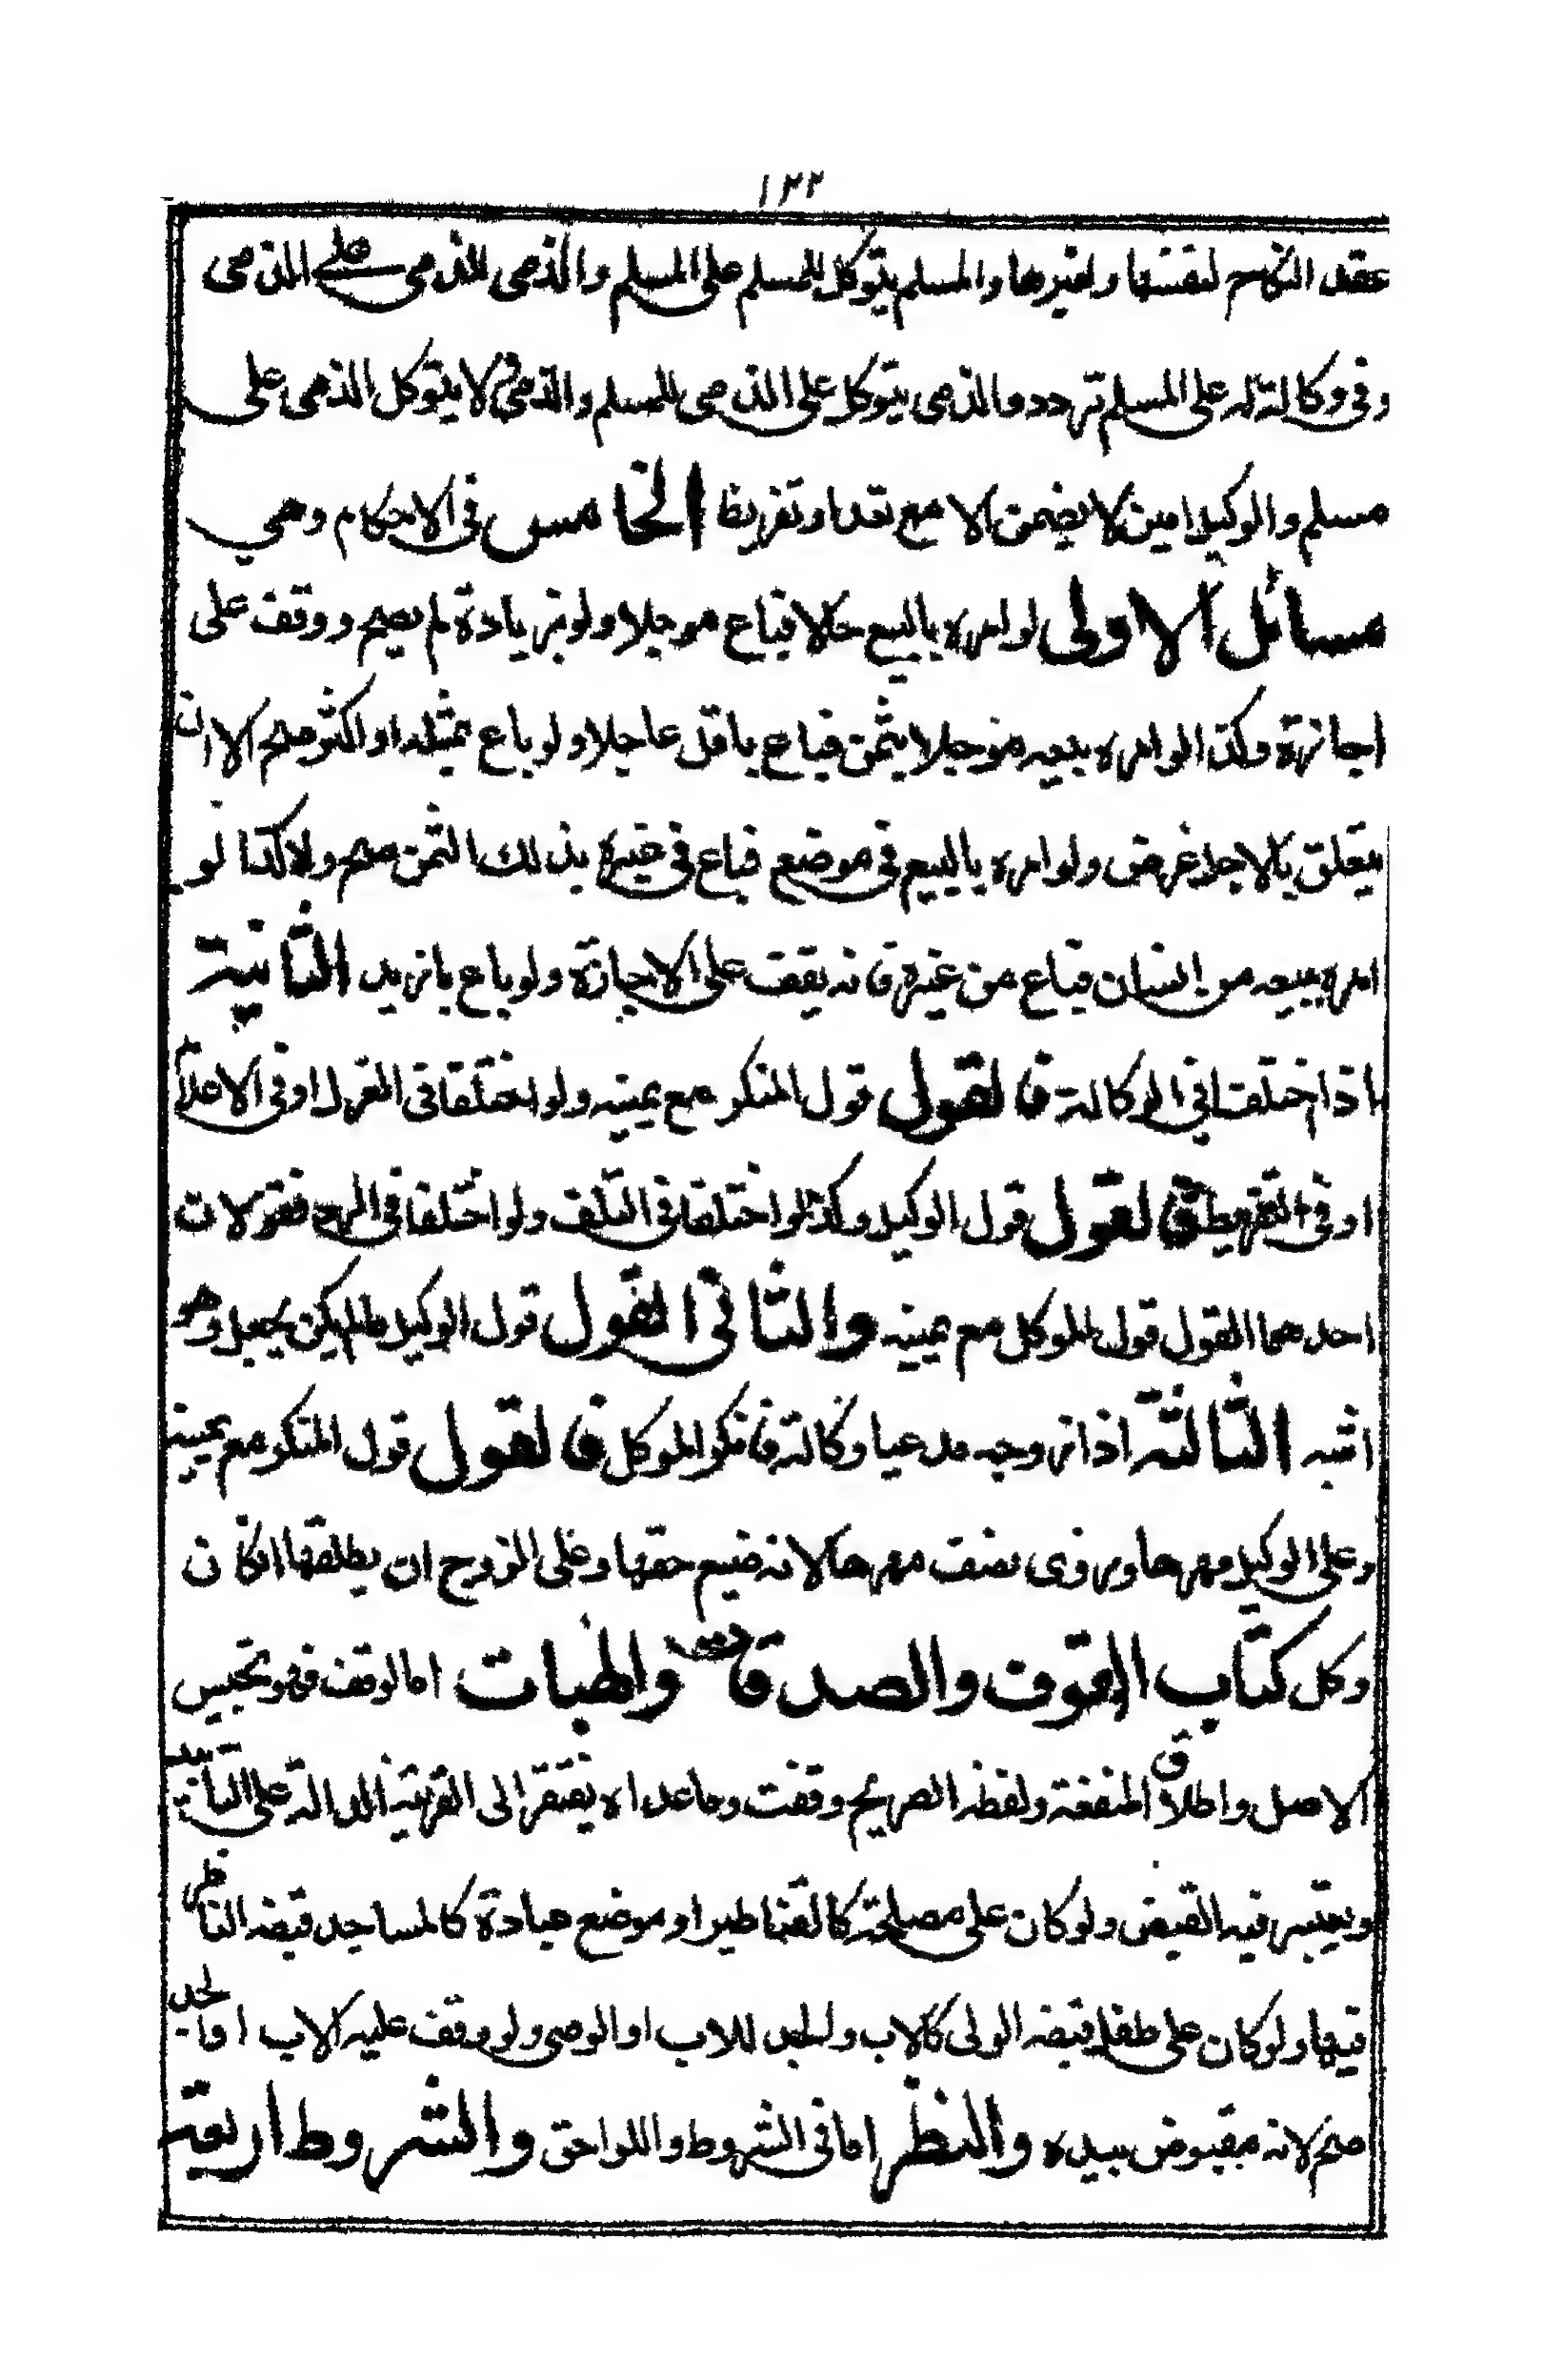 ١٣٢
عقد النكاح لنفسها ولغيرها والمسلم يتوكل للمسلم على المسلم والذمى للذمى على الذمى
وفى وكالته له على المسلم تردد والذمى يتوكل على الذمى للمسلم والذمى ولا يتوكل الذمى على
مسلم والوكيل امين لا يضمن الا مع تعد او تفريط الخامس فى الاحكام وهى
مسائل الاولى لو امره بالبيع حالا فباع موجلا ولو بزيادة لم يصح ووقف على
اجازته وكذا لو امره ببيعه موجلا بثمن فباع باقل عاجلا ولو باع بمثله او اكثر صح الا ان
يتعلق بالاجل غرض ولو امره بالبيع فى موضع فباع فى غيره بذلك الثمن صح ولا كذا لو
امره ببيعه من انسان فباع من غيره فانه يقف على الاجازة ولو باع بازيد الثانية
اذا اختلفا فى الوكالة فالقول قول المنكر مع يمينه ولو اختلفا فى العزل او فى الاعلام
او فى التفريط فالقول قول الوكيل وكذا لو اختلفا فى التلف ولو اختلفا فى الرد فقولان
احدهما القول قول الموكل مع يمينه والثانى القول قول الوكيل مالم يكن بجعل وهو
اشبه الثالثة اذا زوجه مدعيا وكالته فانكر الموكل فالقول قول المنكر مع يمينه
وعلى الوكيل مهرها وروى نصف مهرها لانه ضيع حقها وعلى الزوج ان يطلقها ان كان
وكل كتاب الوقوف والصدقات والهبات اما الوقف فهو تحبيس
الاصل واطلاق المنفعة ولفظه الصريح وقفت وما عداه يفتقر الى القرينة الدالة على التأبيد
ويعتبر فيه القبض ولو كان على مصلحة كالقناطير او موضع عبادة كالمساجد قبضه الناظر
فيها ولو كان على طفل قبضه الولى كالاب والجد للاب او الوصى ولو وقف عليه الاب او الجد
صح لانه مقبوض بيده والنظر اما فى الشروط واللواحق والشروط اربعة